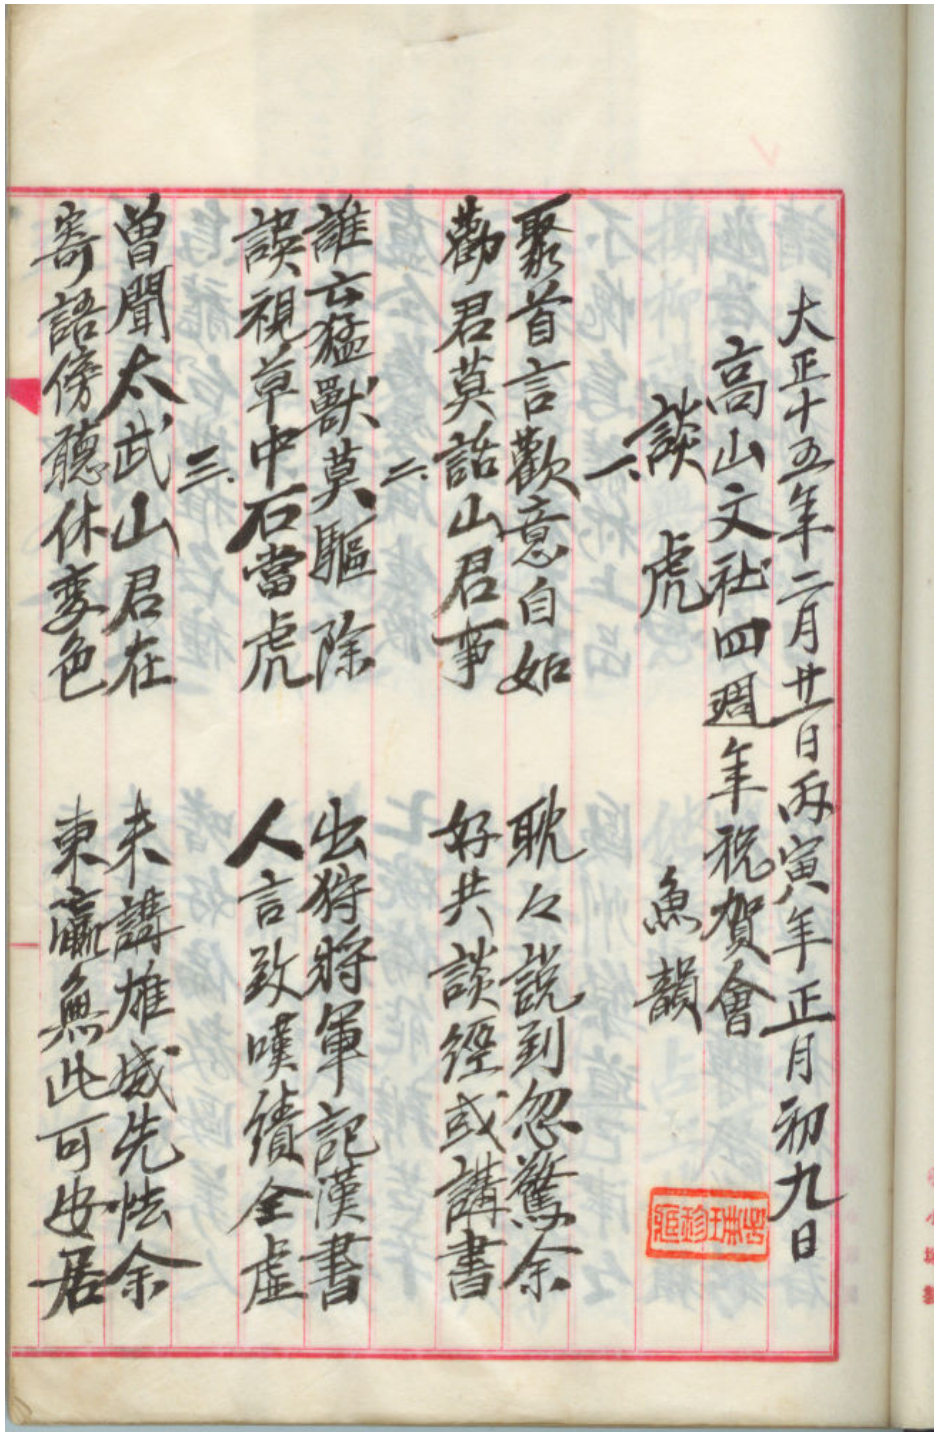 大正十五年二月廿一日丙寅年正月初九日
高山文社四週年祝賀會
談虎 魚韻
一、
聚首言歡意自如 耽々說到忽驚余
勸君莫話山君事 好共談經或講書
二、
誰云猛獸莫驅除 出狩將軍記漢書
誤視草中石當虎 人言致嘆績全虛
三、
曾聞太武山君在 未講雄威先怯余
寄語傍聽休變色 東瀛無此可安居